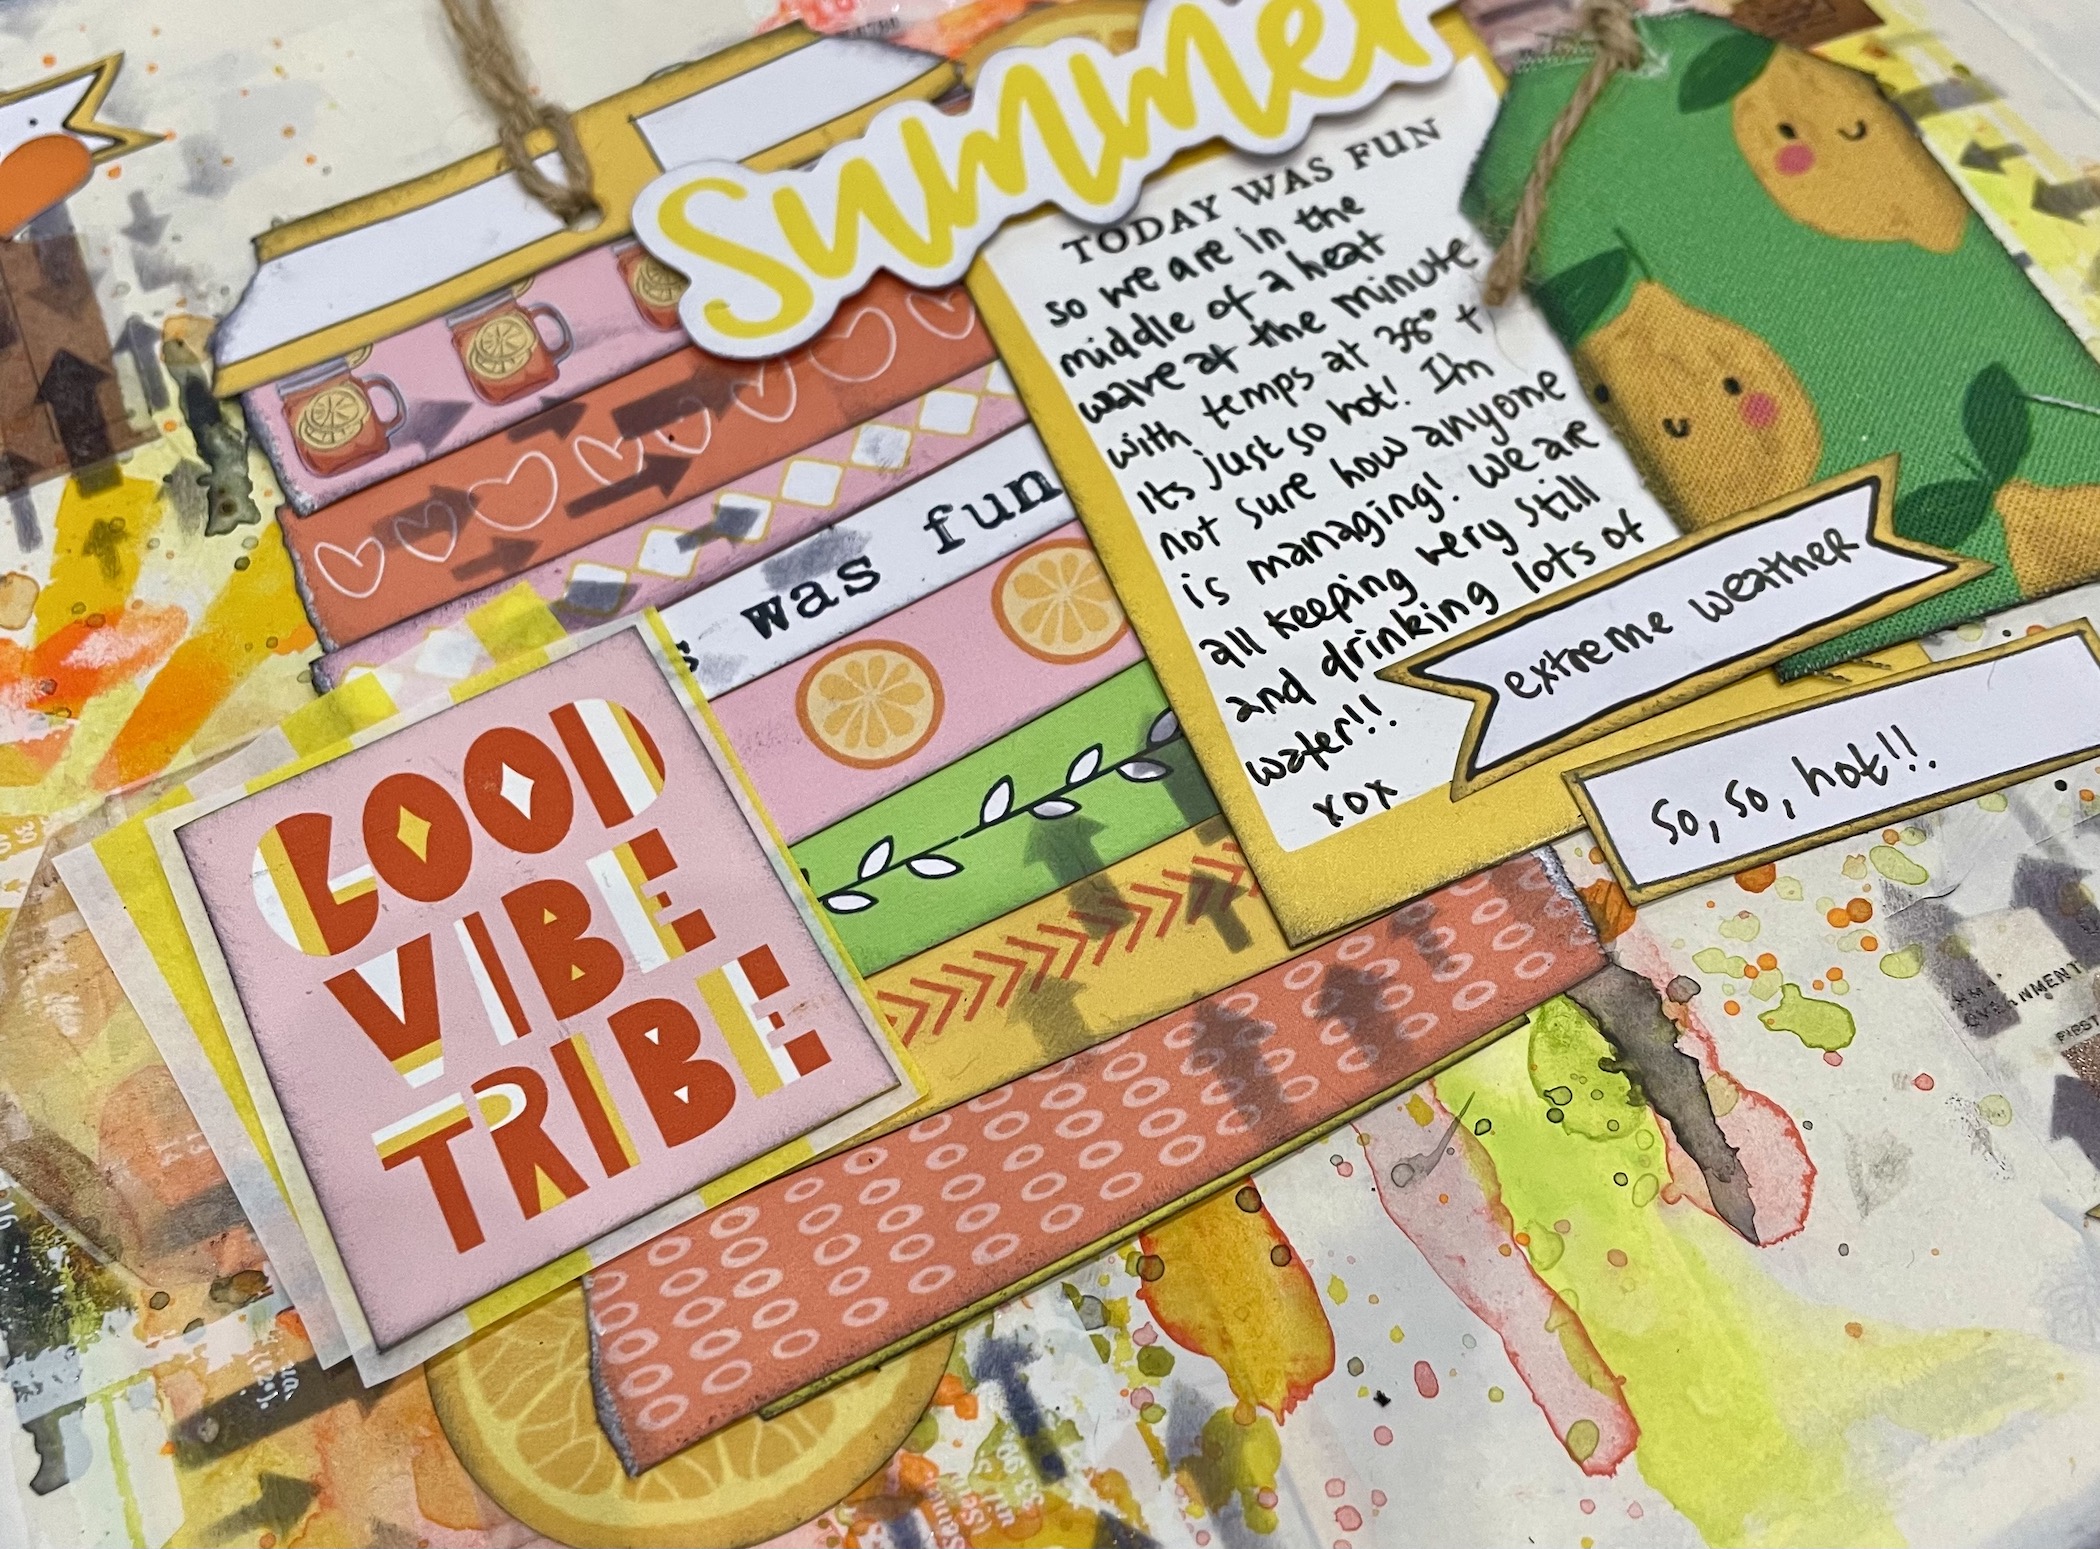 summer
TODAY WAS FUN
so we are in the
middle of a heat
wave at the minute
with temps at 38° +
Its just so hot! I'm
not sure how anyone
is managing!. We are
all keeping very still
and drinking lots of
water!!
xox
extreme weather
so, so, hot!!
s was fun
GOOD
VIBE
TRIBE